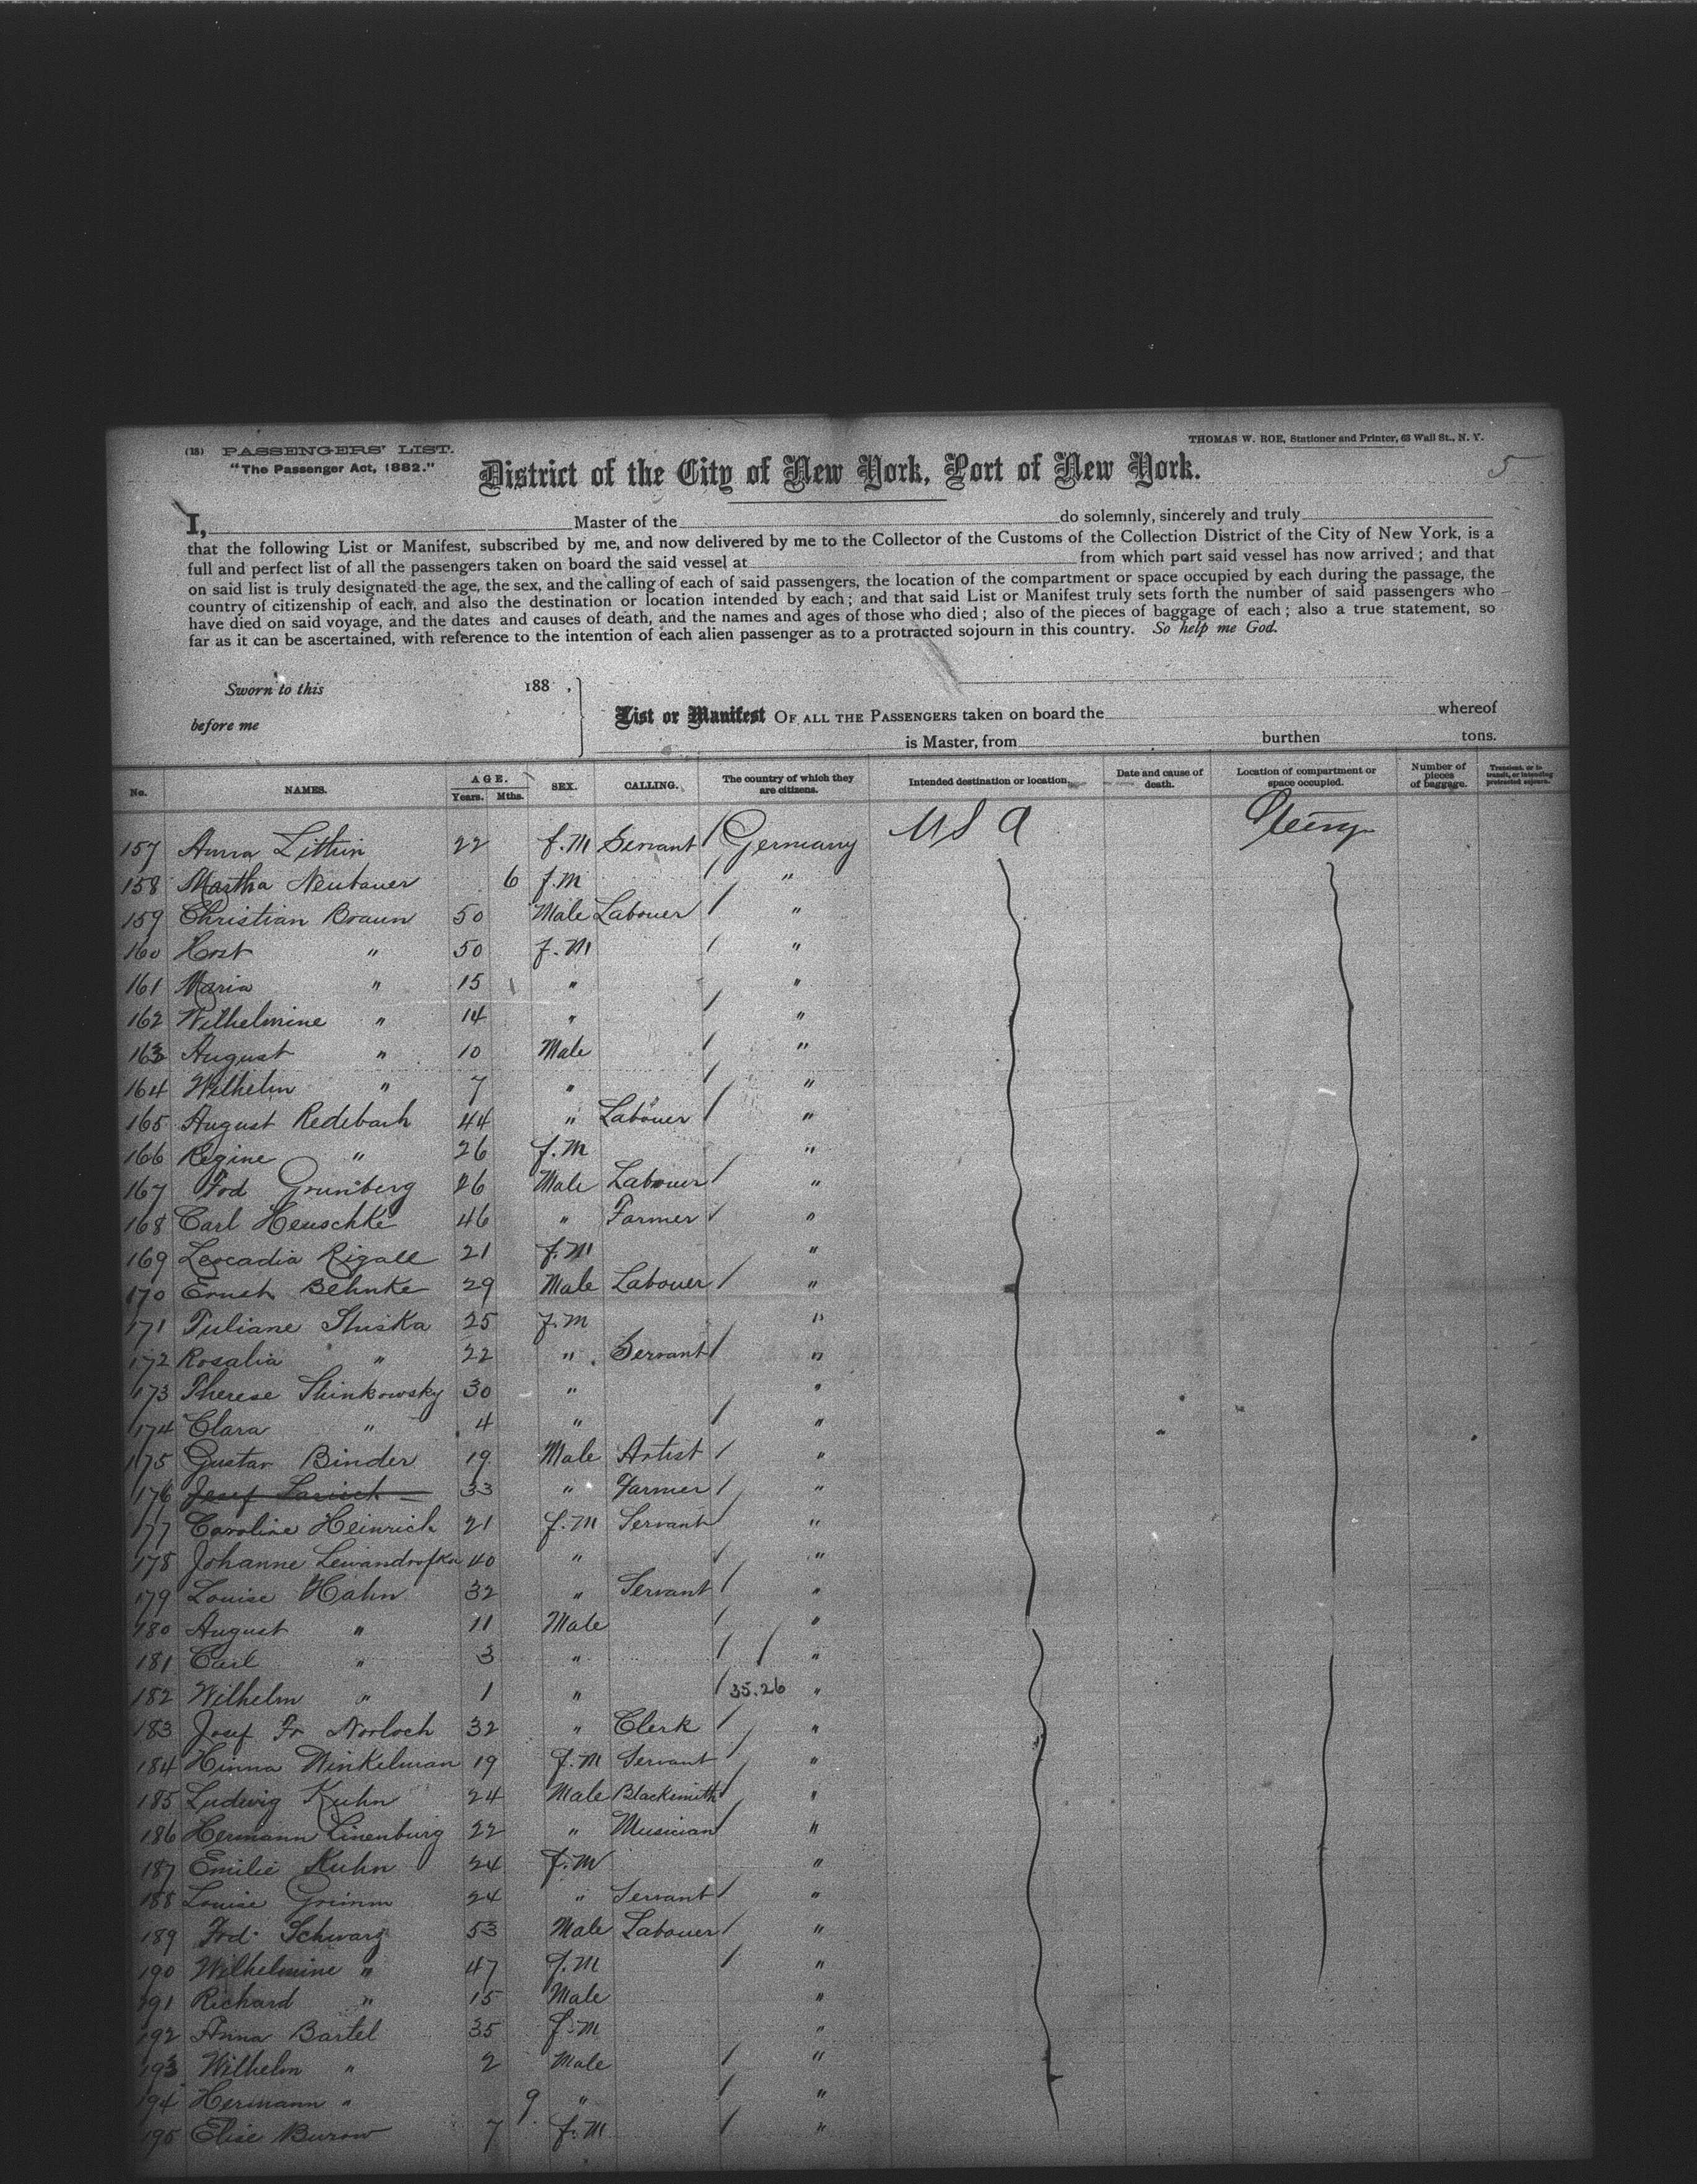 (18) PASSENGERS' LIST.
THOMAS W. ROE, Stationer and Printer, 63 Wall St., N. Y.
"The Passenger Act, 1882."
District of the City of New York, Port of New York.
5
I, Master of the do solemnly, sincerely and truly
that the following List or Manifest, subscribed by me, and now delivered by me to the Collector of the Customs of the Collection District of the City of New York, is a
full and perfect list of all the passengers taken on board the said vessel at from which port said vessel has now arrived; and that
on said list is truly designated the age, the sex, and the calling of each of said passengers, the location of the compartment or space occupied by each during the passage, the
country of citizenship of each, and also the destination or location intended by each; and that said List or Manifest truly sets forth the number of said passengers who
have died on said voyage, and the dates and causes of death, and the names and ages of those who died; also of the pieces of baggage of each; also a true statement, so
far as it can be ascertained, with reference to the intention of each alien passenger as to a protracted sojourn in this country. So help me God.
Sworn to this 188 ,
before me
List or Manifest OF ALL THE PASSENGERS taken on board the whereof
is Master, from burthen tons.
No. NAMES. AGE. Years. Mths. SEX. CALLING. The country of which they are citizens. Intended destination or location. Date and cause of death. Location of compartment or space occupied. Number of pieces of baggage. Transient, or in transit, or intending protracted sojourn.
157 Anna Littin 22 f.M Servant / Germany U S A
158 Martha Neubauer 6 f.M / "
159 Christian Braun 50 Male Labouer / "
160 Host " 50 f.M / "
161 Maria " 15 " "
162 Wilhelmine " 14 " / "
163 August " 10 Male / "
164 Wilhelm " 7 " / "
165 August Redebach 44 " Labouer / "
166 Regine " 26 f.M "
167 Frd Grunberg 26 Male Labouer / "
168 Carl Heuschke 46 " Farmer / "
169 Leocadia Rigall 21 f.M "
170 Ernst Behnke 29 Male Labouer / "
171 Juliane Shiska 25 f.M "
172 Rosalia " 22 " Servant / "
173 Therese Shinkowsky 30 " "
174 Clara " 4 " / "
175 Gustav Binder 19 Male Artist / "
176 Josef Larisch 33 " Farmer / "
177 Caroline Heinrich 21 f.M Servant / "
178 Johanne Lewandrofka 40 " / "
179 Louise Hahn 32 " Servant / "
180 August " 11 Male / "
181 Carl " 3 " / / "
182 Wilhelm " 1 " / 35.26 "
183 Josef Fr Norloch 32 " Clerk / "
184 Hinna Winkelman 19 f.M Servant / "
185 Ludwig Kuhn 24 Male Blacksmith / "
186 Hermann Linenburg 22 " Musician / "
187 Emilie Kuhn 24 f.M "
188 Louise Grimm 24 " Servant / "
189 Frd. Schwarz 53 Male Labouer / "
190 Wilhelmine " 47 f.M / "
191 Richard " 15 Male "
192 Anna Bartel 35 f.M "
193 Wilhelm " 2 Male / "
194 Hermann " 9 " / "
195 Elise Burow 7 f.M / "